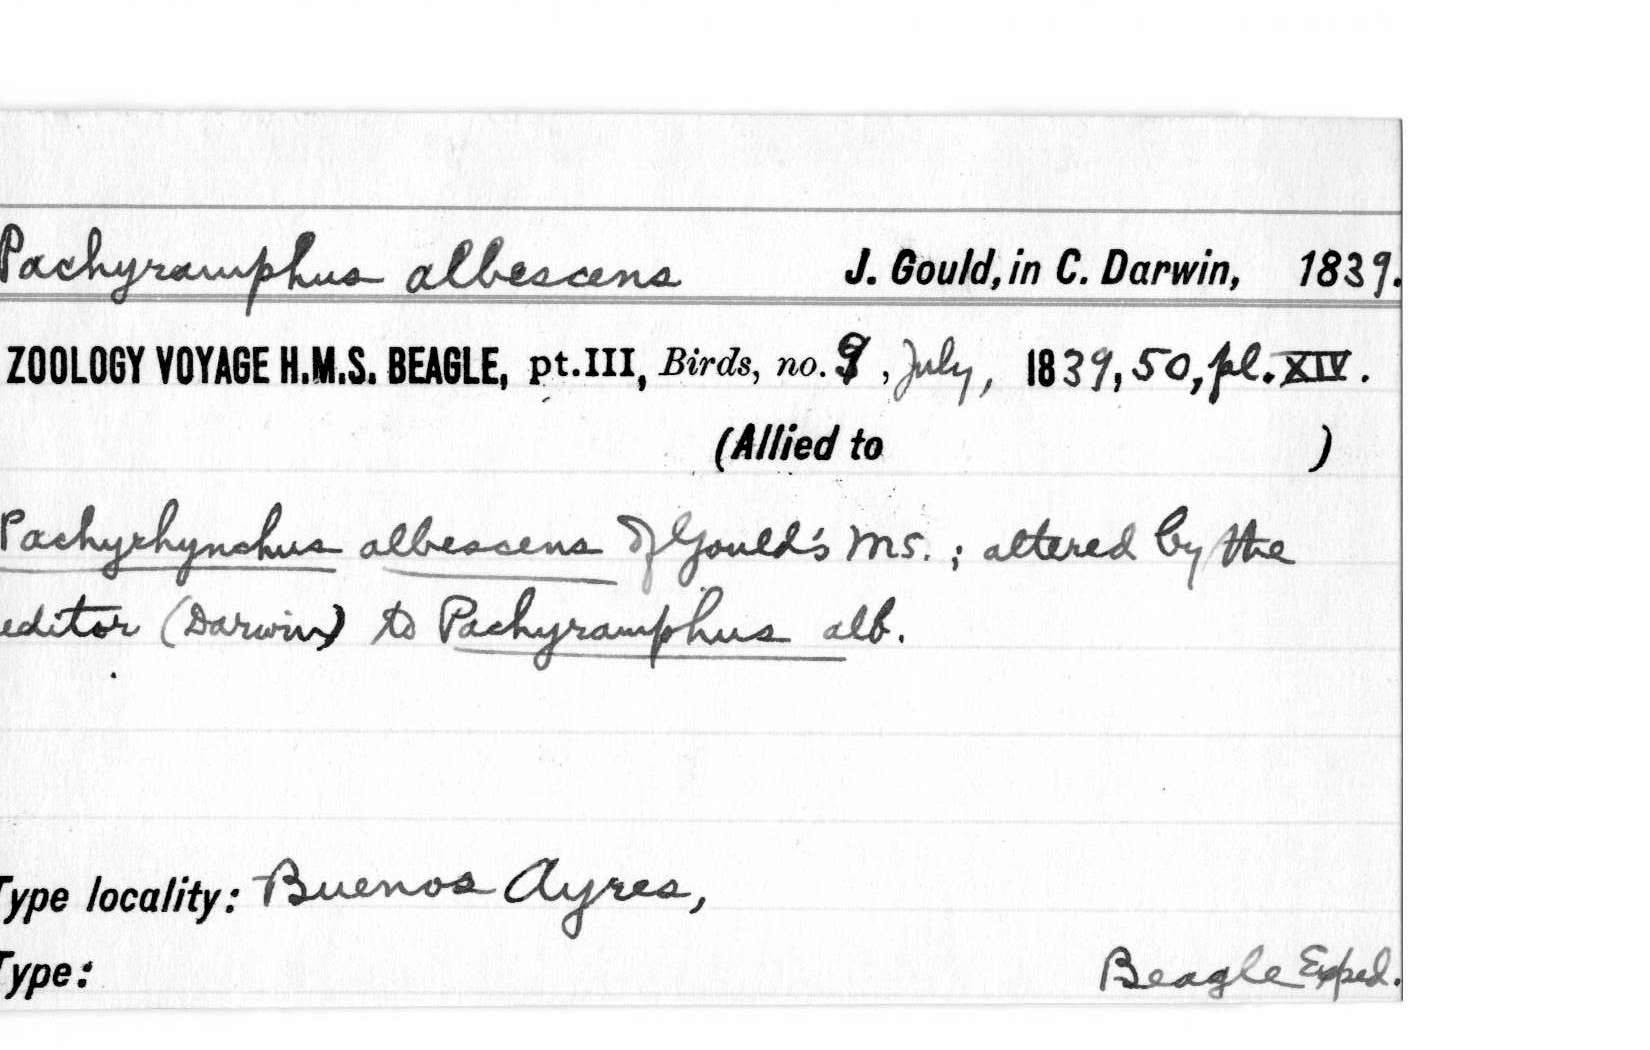 Pachyramphus albescens J. Gould, in C. Darwin, 1839.
ZOOLOGY VOYAGE H.M.S. BEAGLE, pt.III, Birds, no. 9, July, 1839, 50, pl. XIV.
(Allied to )
Pachyrhynchus albescens of Gould's Ms. ; altered by the
editor (Darwin) to Pachyramphus alb.
Type locality: Buenos Ayres,
Type: Beagle Exped.